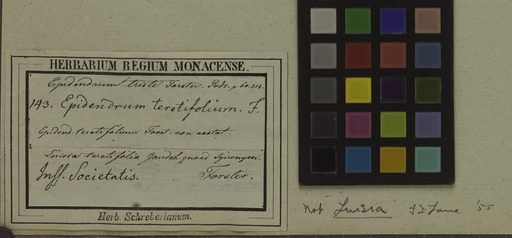 HERBARIUM REGIUM MONACENSE.
Epidendrum triste Forster. Prodr. p. 60. 314.
143. Epidendrum teretifolium. F.
Epidend. teretifolium Forst. non
Luisia teretifolia Gaudich. quoad Synonym.
Inss. Societatis. Forster.
Herb. Schreberianum.
not Luisia '55